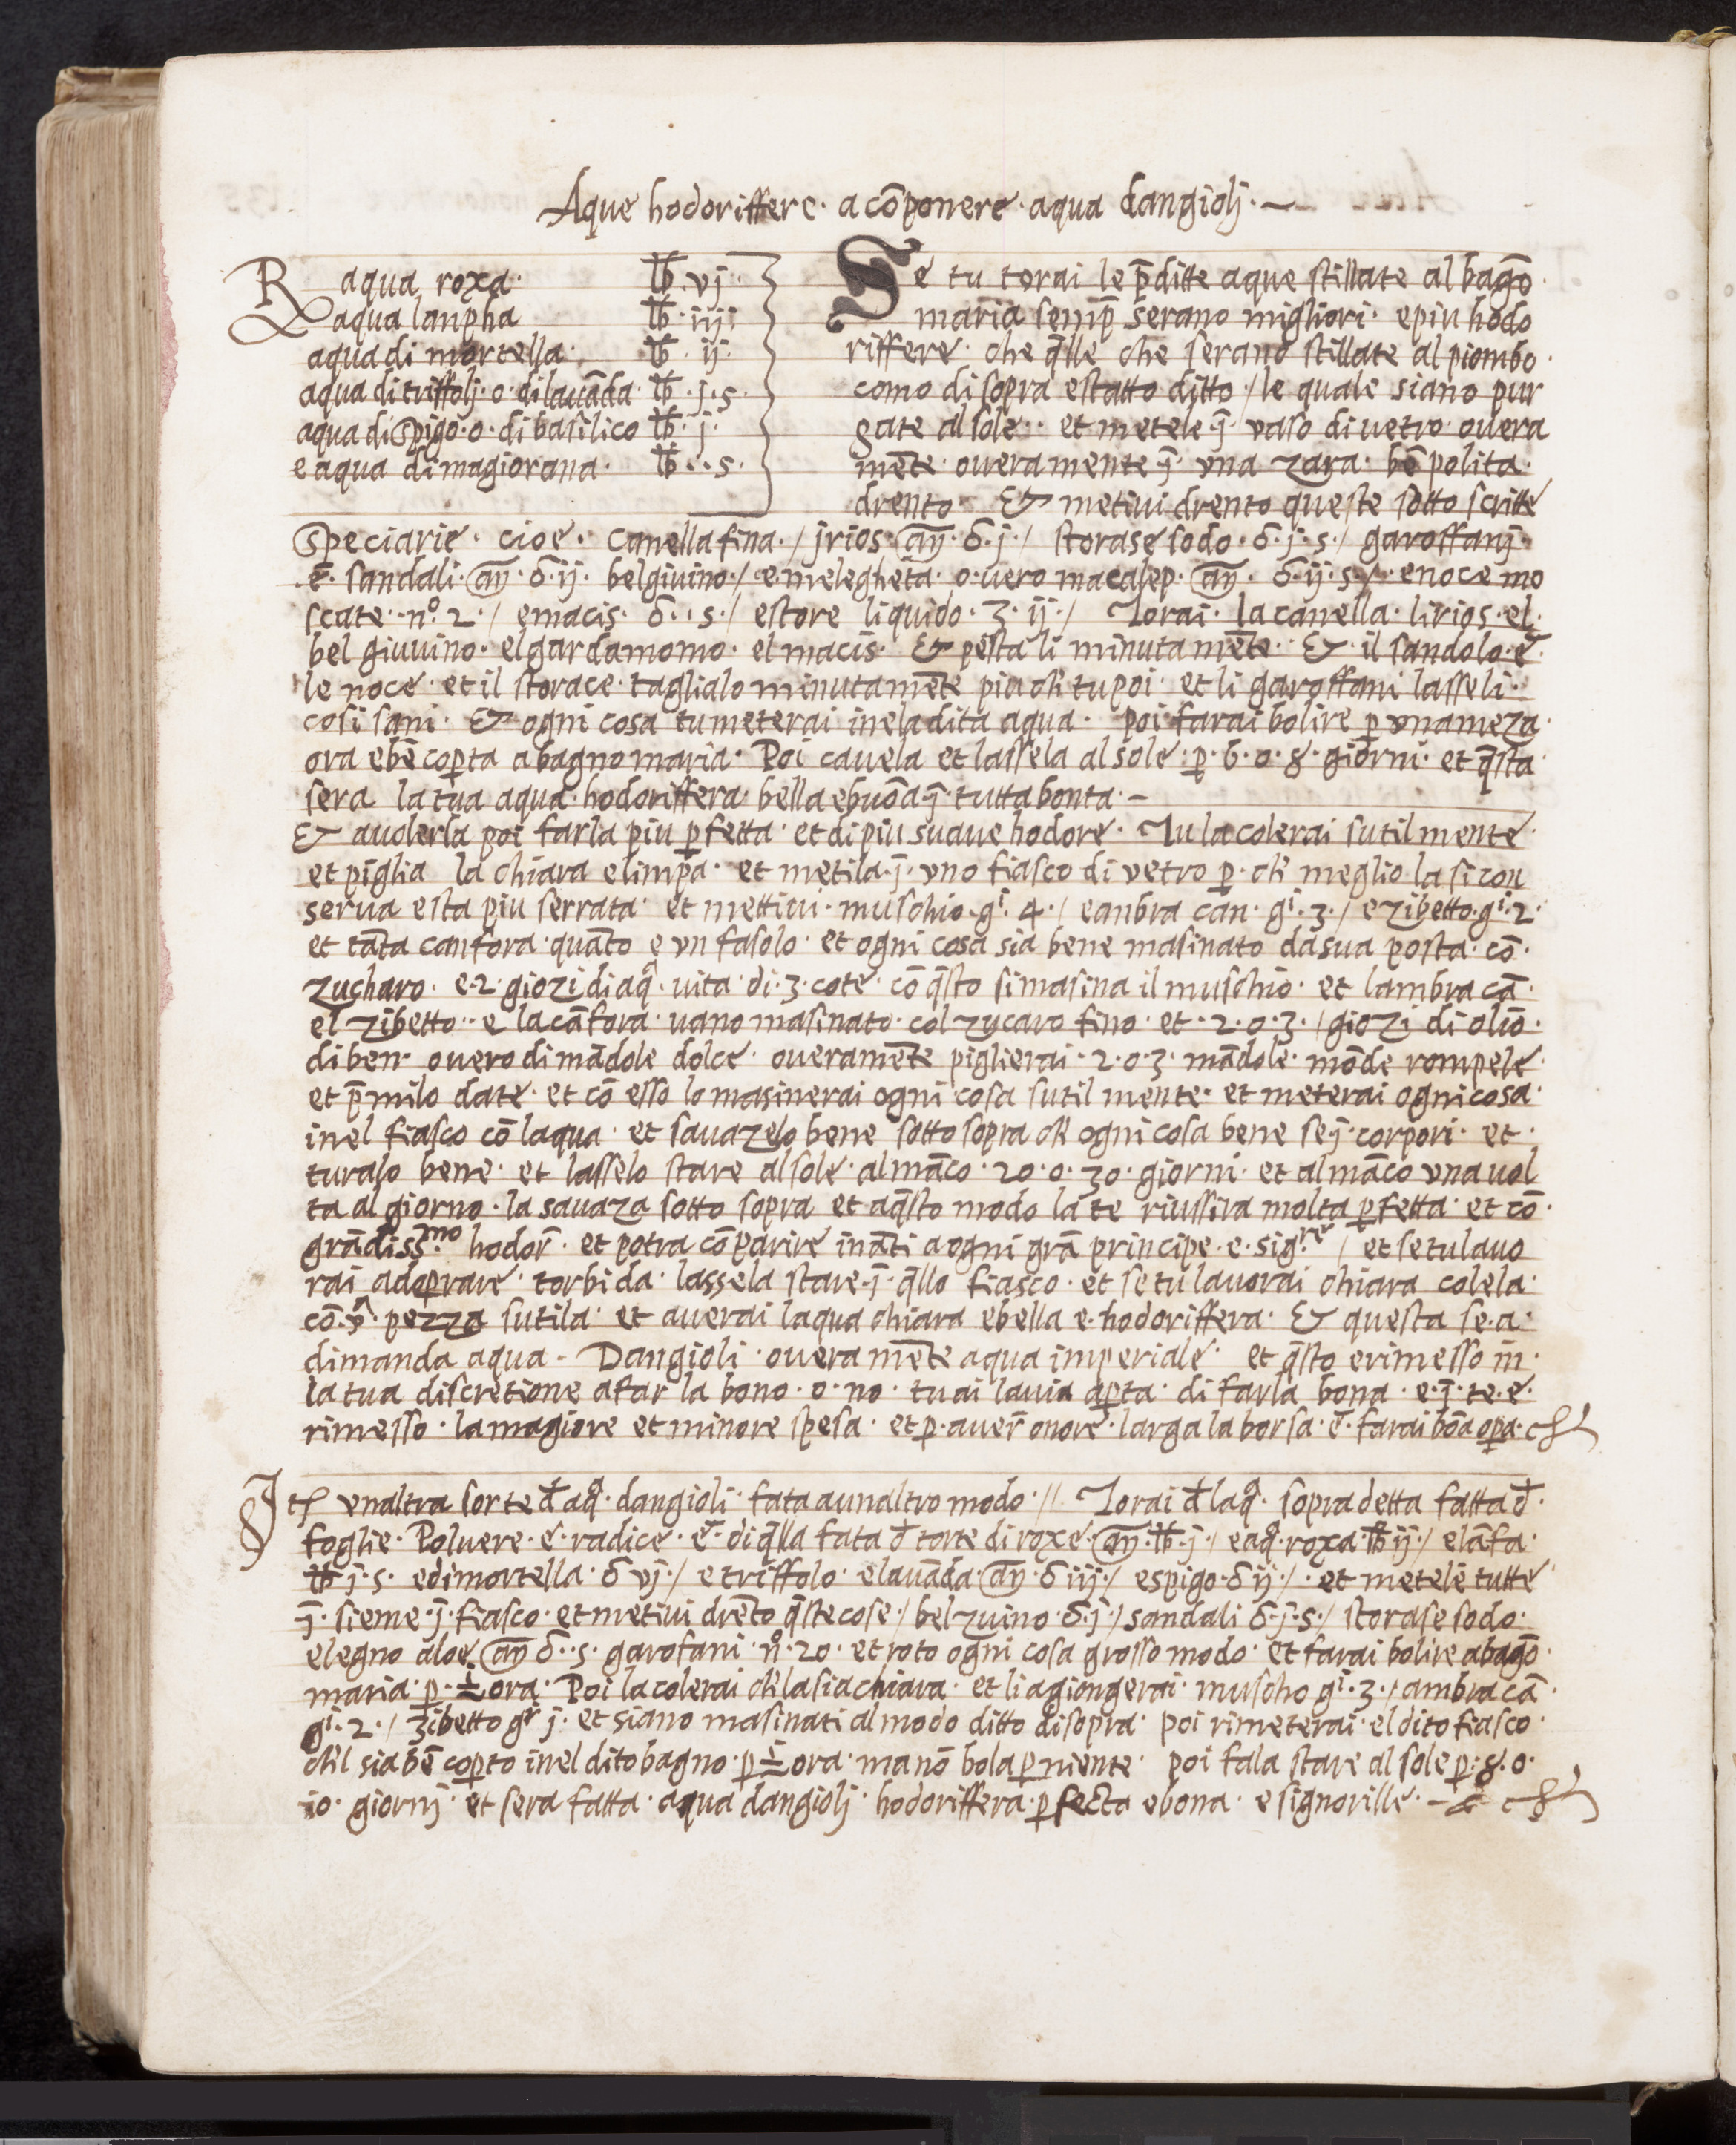 Aque hodoriffere · a cōponere · aqua dangiolj · –
R aqua roxa · ℔ · vj ·
aqua lanpha ℔ · iij ·
aqua di mortella · ℔ · ij ·
aqua di triffolj · o · di lauāda ℔ · j · s ·
aqua di spigo · o · di basilico ℔ · j ·
e aqua di magiorana · ℔ · · s ·
Se tu torai le p̄ditte aque stillate al bagō ·
maria semp̄ serano migliori · e piu hodo
riffere · che q̄lle che serano stillate al piombo ·
como di sopra estatto ditto / le quale siano pur
gate al sole · · et metele · j̄ · vaso di uetro ouera
mēte · oueramente j̄ · vna zara · bē polita ·
drento · & metiui drento queste sotto scritte
speciarie · cioe · canella fina · / jrios · aȳ · ℥ · j · / storase sodo · ℥ · j · s · / garoffanj ·
ē · sandali · aȳ · ℥ · ij · belgiuino · / e melegheta · o · uero macalep · aȳ · ℥ · ij · s · / · e noce mo
scate · nº · 2 · / e macis · ℥ · · s · / e store liquido · ʒ · ij · / Torai · la canella · lirios · el ·
bel giuuino · el gardamomo · el macis · & pista li minuta mēte · & il sandolo · e ·
le noce · et il storace · taglialo minutamēte piu ch̄ tu poi · et li garoffani lasseli ·
cosi sani · & ogni cosa tu meterai in ela dita aqua · poi farai bolire p̱ vna meza ·
ora e bē cop̱ta a bagno maria · Poi cauela et lassela al sole · p̱ · 6 · o · 8 · giorni · et q̄sta ·
sera la tua aqua · hodoriffera · bella e buōa j̄ · tutta bonta · –
& a uolerla poi farla piu p̱fetta · et di piu suaue hodore · Tu la colerai sutilmente ·
et piglia la chiara e limpa · et metila · j̄ · vno fiasco di vetro p̱ · ch̄ meglio la si con
serua e sta piu serrata · et mettiui · muschio · gⁱ · 4 · / e anbra cān · gⁱ · 3 · / e zibetto · gⁱ · 2 ·
et tāta canfora · quāto e vn fasolo · et ogni cosa sia bene masinato da sua posta · cō ·
zucharo · e · 2 · giozi di aq̄ · uita · di · 3 · cote · cō q̄sto si masina il muschio · et lambra cā ·
el zibetto · · e la cāfora · uano masinato · col zucaro fino · et · 2 · o · 3 · / giozi di oliō ·
di ben · ouero di mādole dolce · oueramēte piglierai · 2 · o · 3 · mādole · mōde rompele ·
et p̄milo date · et cō esso lo masinerai ogni cosa sutil mente · et meterai ogni cosa ·
in el fiasco cō laqua · et sauazelo bene sotto sopra ch̄ ogni cosa bene se j̄ · corpori · et ·
turalo bene · et lasselo stare al sole · al māco · 20 · o · 30 · giorni · et al māco vna uol
ta al giorno · la sauaza sotto sopra et a q̄sto modo la te riussira molta p̱fetta · et cō ·
grādissᵐᵒ hodor̄ · et potra cōparire ināti a ogni grā principe · e · sigʳᵉ / et se tu la uo
rai adop̱rare · torbida · lassela stare · j̄ · q̄llo fiasco · et se tu la uorai chiara colela ·
cō · vᵃ · pezza sutila · et auerai laqua chiara e bella e · hodoriffera · & questa se · a ·
dimanda aqua · Dangioli · ouera mēte aqua imperiale · et q̄sto e rimesso in ·
la tua discretione a far la bono · o · no · tu ai la uia ap̱ta · di farla bona · e · j̄ · te · e ·
rimesso · la magiore et minore spesa · et p̱ · auer̄ onore · larga la borsa · ē · farai bōa op̱a ·
Itē vnaltra sorte đ aq̄ · dangioli · fata a unaltro modo · // · Torai đ laq̄ · sopra detta fatta đ ·
foglie · Poluere · e · radice · e · di q̄lla fata đ torte di roxe · aȳ · ℔ · j · / e aq̄ · roxa ℔ ij · / e lāfa ·
℔ j · s · e di mortella · ℥ vj · / e triffolo · e lauāda · aȳ · ℥ iij · / e spigo · ℥ ij · / · et metele tutte
j̄ · sieme · j̄ · fiasco · et metiui drēto q̄ste cose · / belzuino · ℥ · j · / sandali ℥ · j · s · / storase sodo ·
e legno aloe aȳ ℥ · · s · garofani · nº · 20 · et roto ogni cosa grosso modo · et farai bolire a bagō ·
maria · p̱ · ½ ora · Poi la colerai ch̄ la sia chiara · et li agiongerai · muscho gⁱ · 3 · / ambra cā ·
gⁱ · 2 · / zibetto gʳ j · et siano masinati al modo ditto di sopra · poi rimeterai · el dito fiasco ·
ch̄l sia bē cop̱to in el dito bagno · p̱ ½ ora · ma nō bola p̱ niente · poi fala stare al sole p̱ · 8 · o ·
io · giornj · et sera fatta · aqua dangiolj · hodoriffera · p̱fecta e bona · e signorille · –